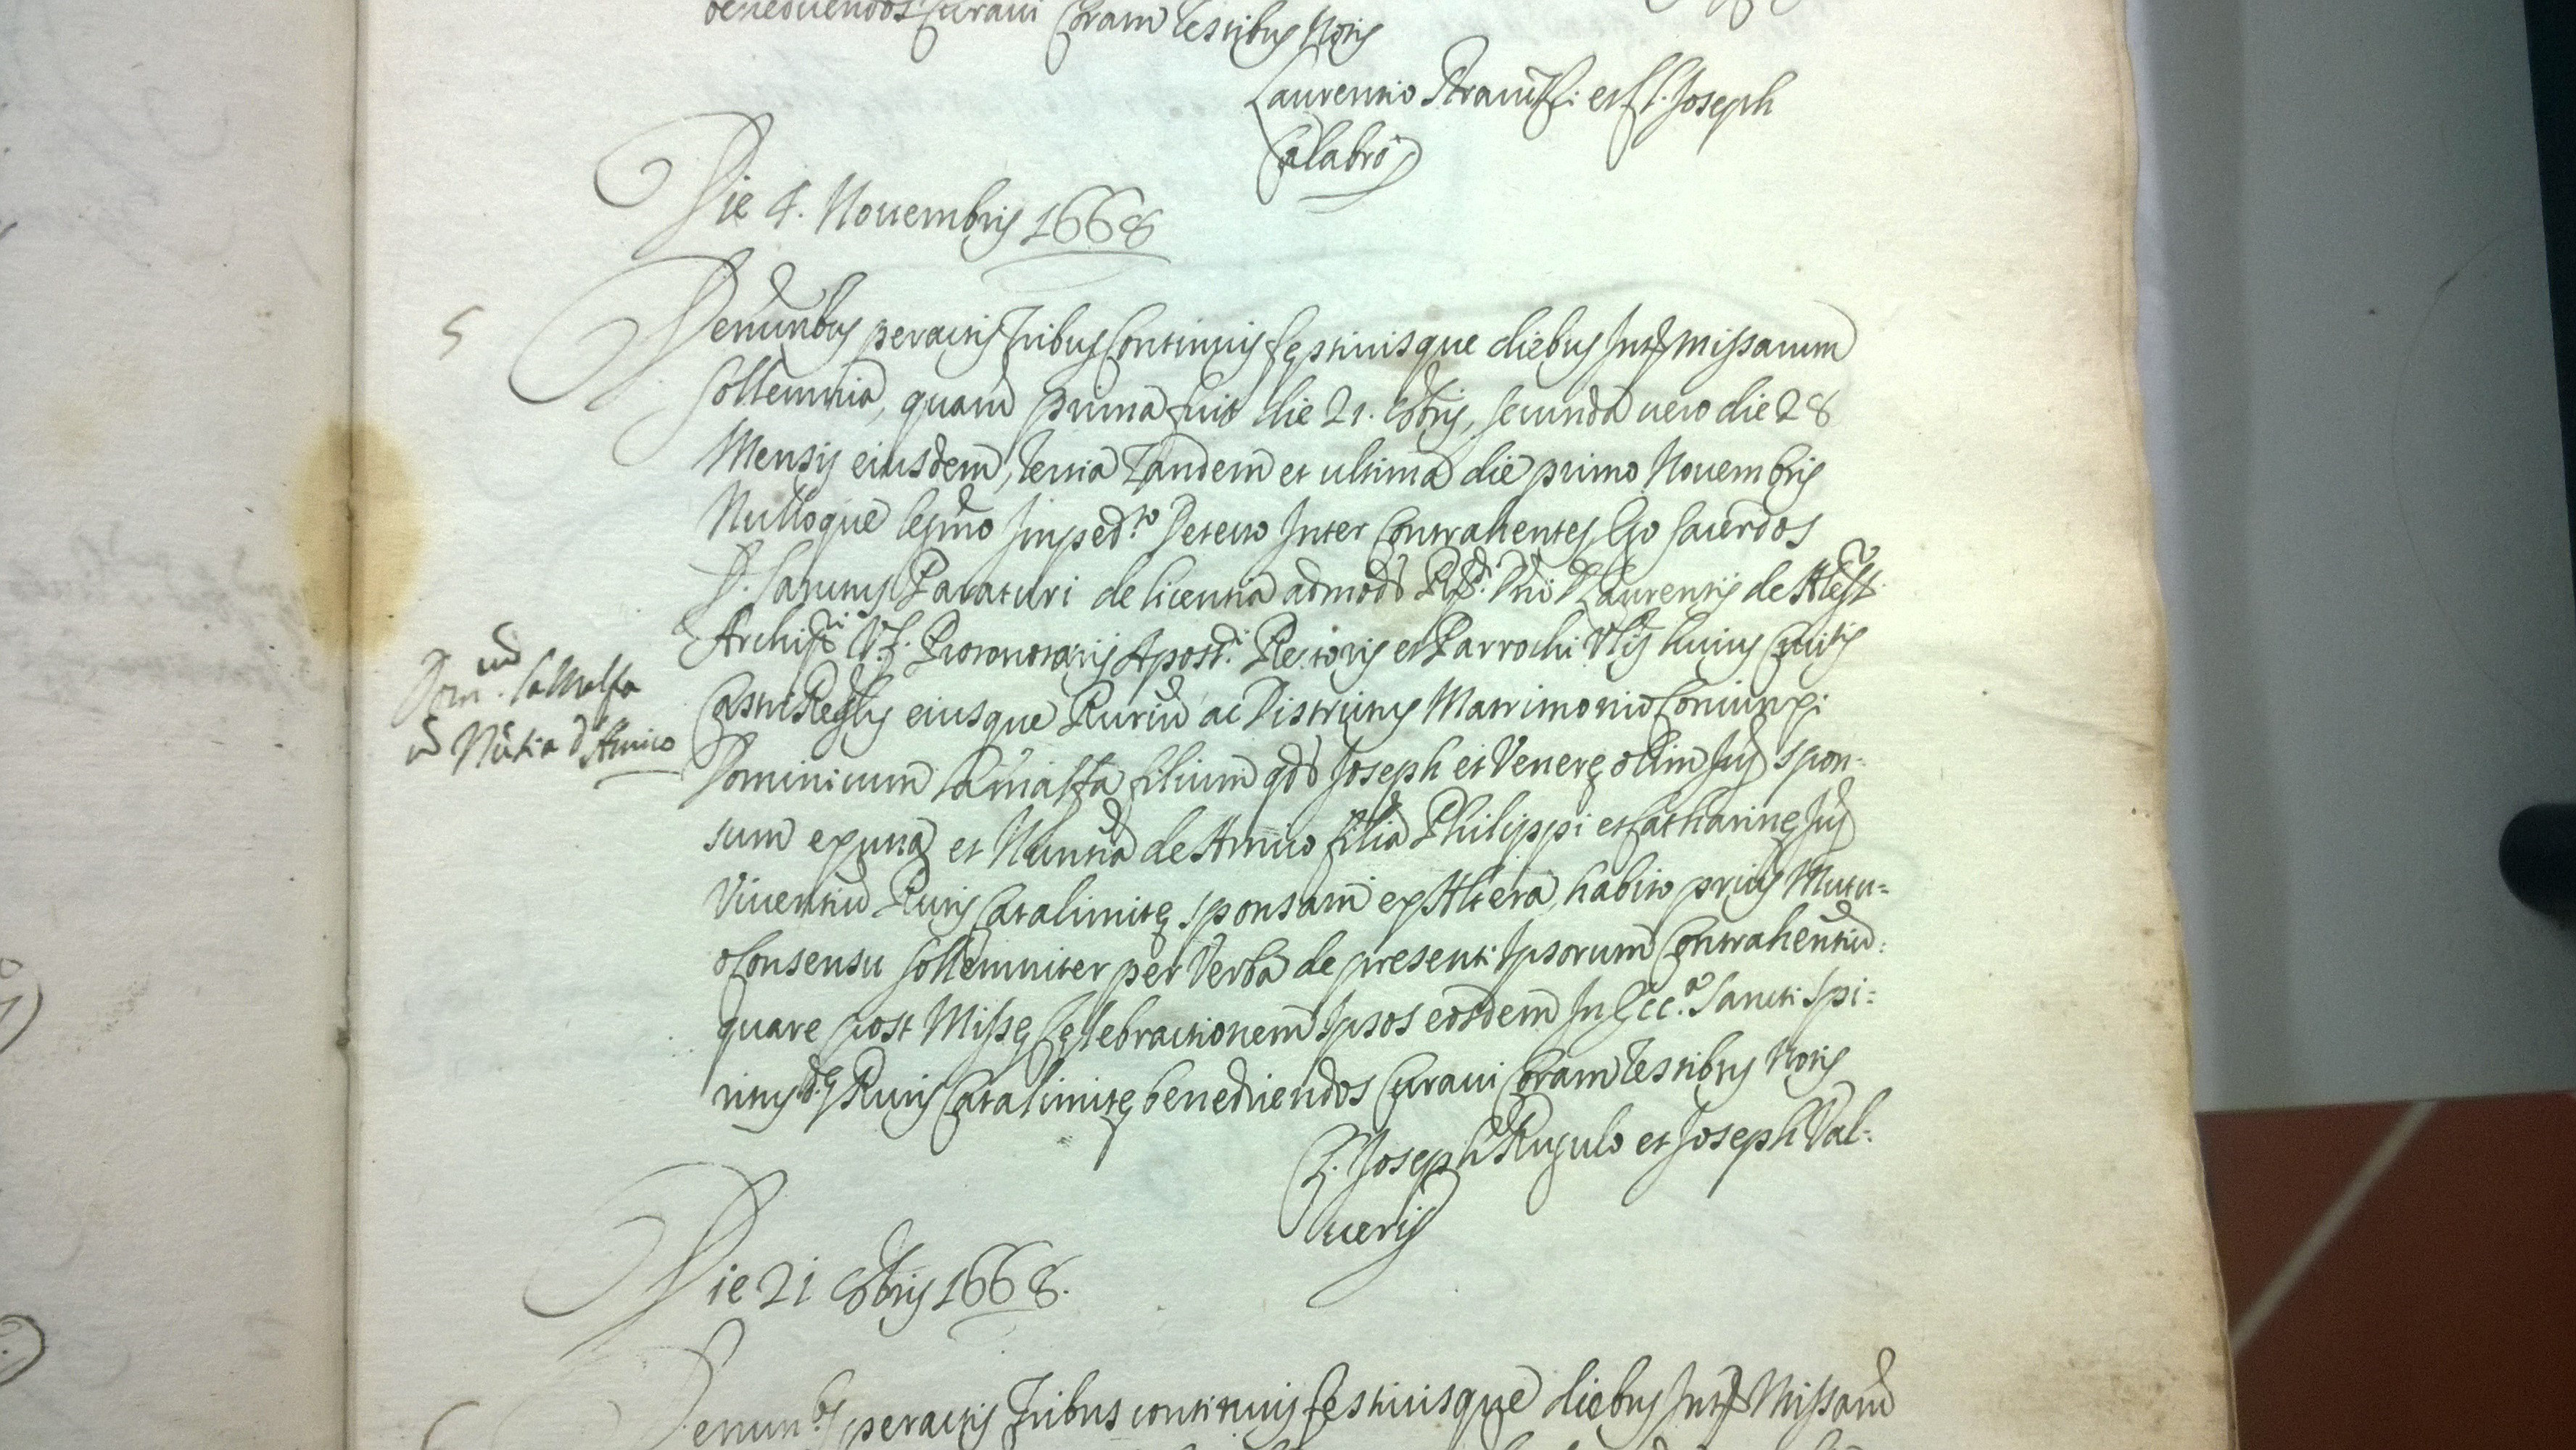 benedicendos Curaui Coram testibus Notis
Laurentio et Cl. Joseph
Calabrò
Die 4. Nouembris 1668
5
Denuntbus peractis Tribus Continuis festiuisque diebus Intr missarum
sollemnia, quarum prima fuit die 21. 8bris, secunda uero die 28
Mensis eiusdem, tertia tandem et ultima die primo Nouembris
Nulloque legmo Imped.to Detecto Inter Contrahentes Ego sacerdos
D. Sanctus Paraturi de licentia admod R.di Dni D Laurentij de
Archip.ri V.F. Protonotarij Apost.ci Rectoris et Parrochi Vlis huius Ciuitis
Castri Reglis eiusque Ruriu ac Districtus Matrimonio Coniunxi
Dom.cu la Malfa
cu Nutia d'Amico
Dominicum lamalfa filium qd Joseph et Venere olim Jug spon-
sum ex una et Nuntia de Amico filia Philippi et Catharine Jug
Viuentiu Ruris Catalimite sponsam ex Altera, habito prius Mutu=
o Consensu sollemniter per Verba de presenti Ipsorum Contrahentiu:
quare post Misse Celebractionem Ipsos eosdem In Ecc.a Sancti Spi=
ritus d. Ruris Catalimite benedicendos Curaui Coram testibus Notis
Cl. Joseph Rugulo et Joseph Val-
ueris
Die 21 8bris 1668.
Denun.bs peractis Tribus continuis festiuisque diebus Intr Missaru